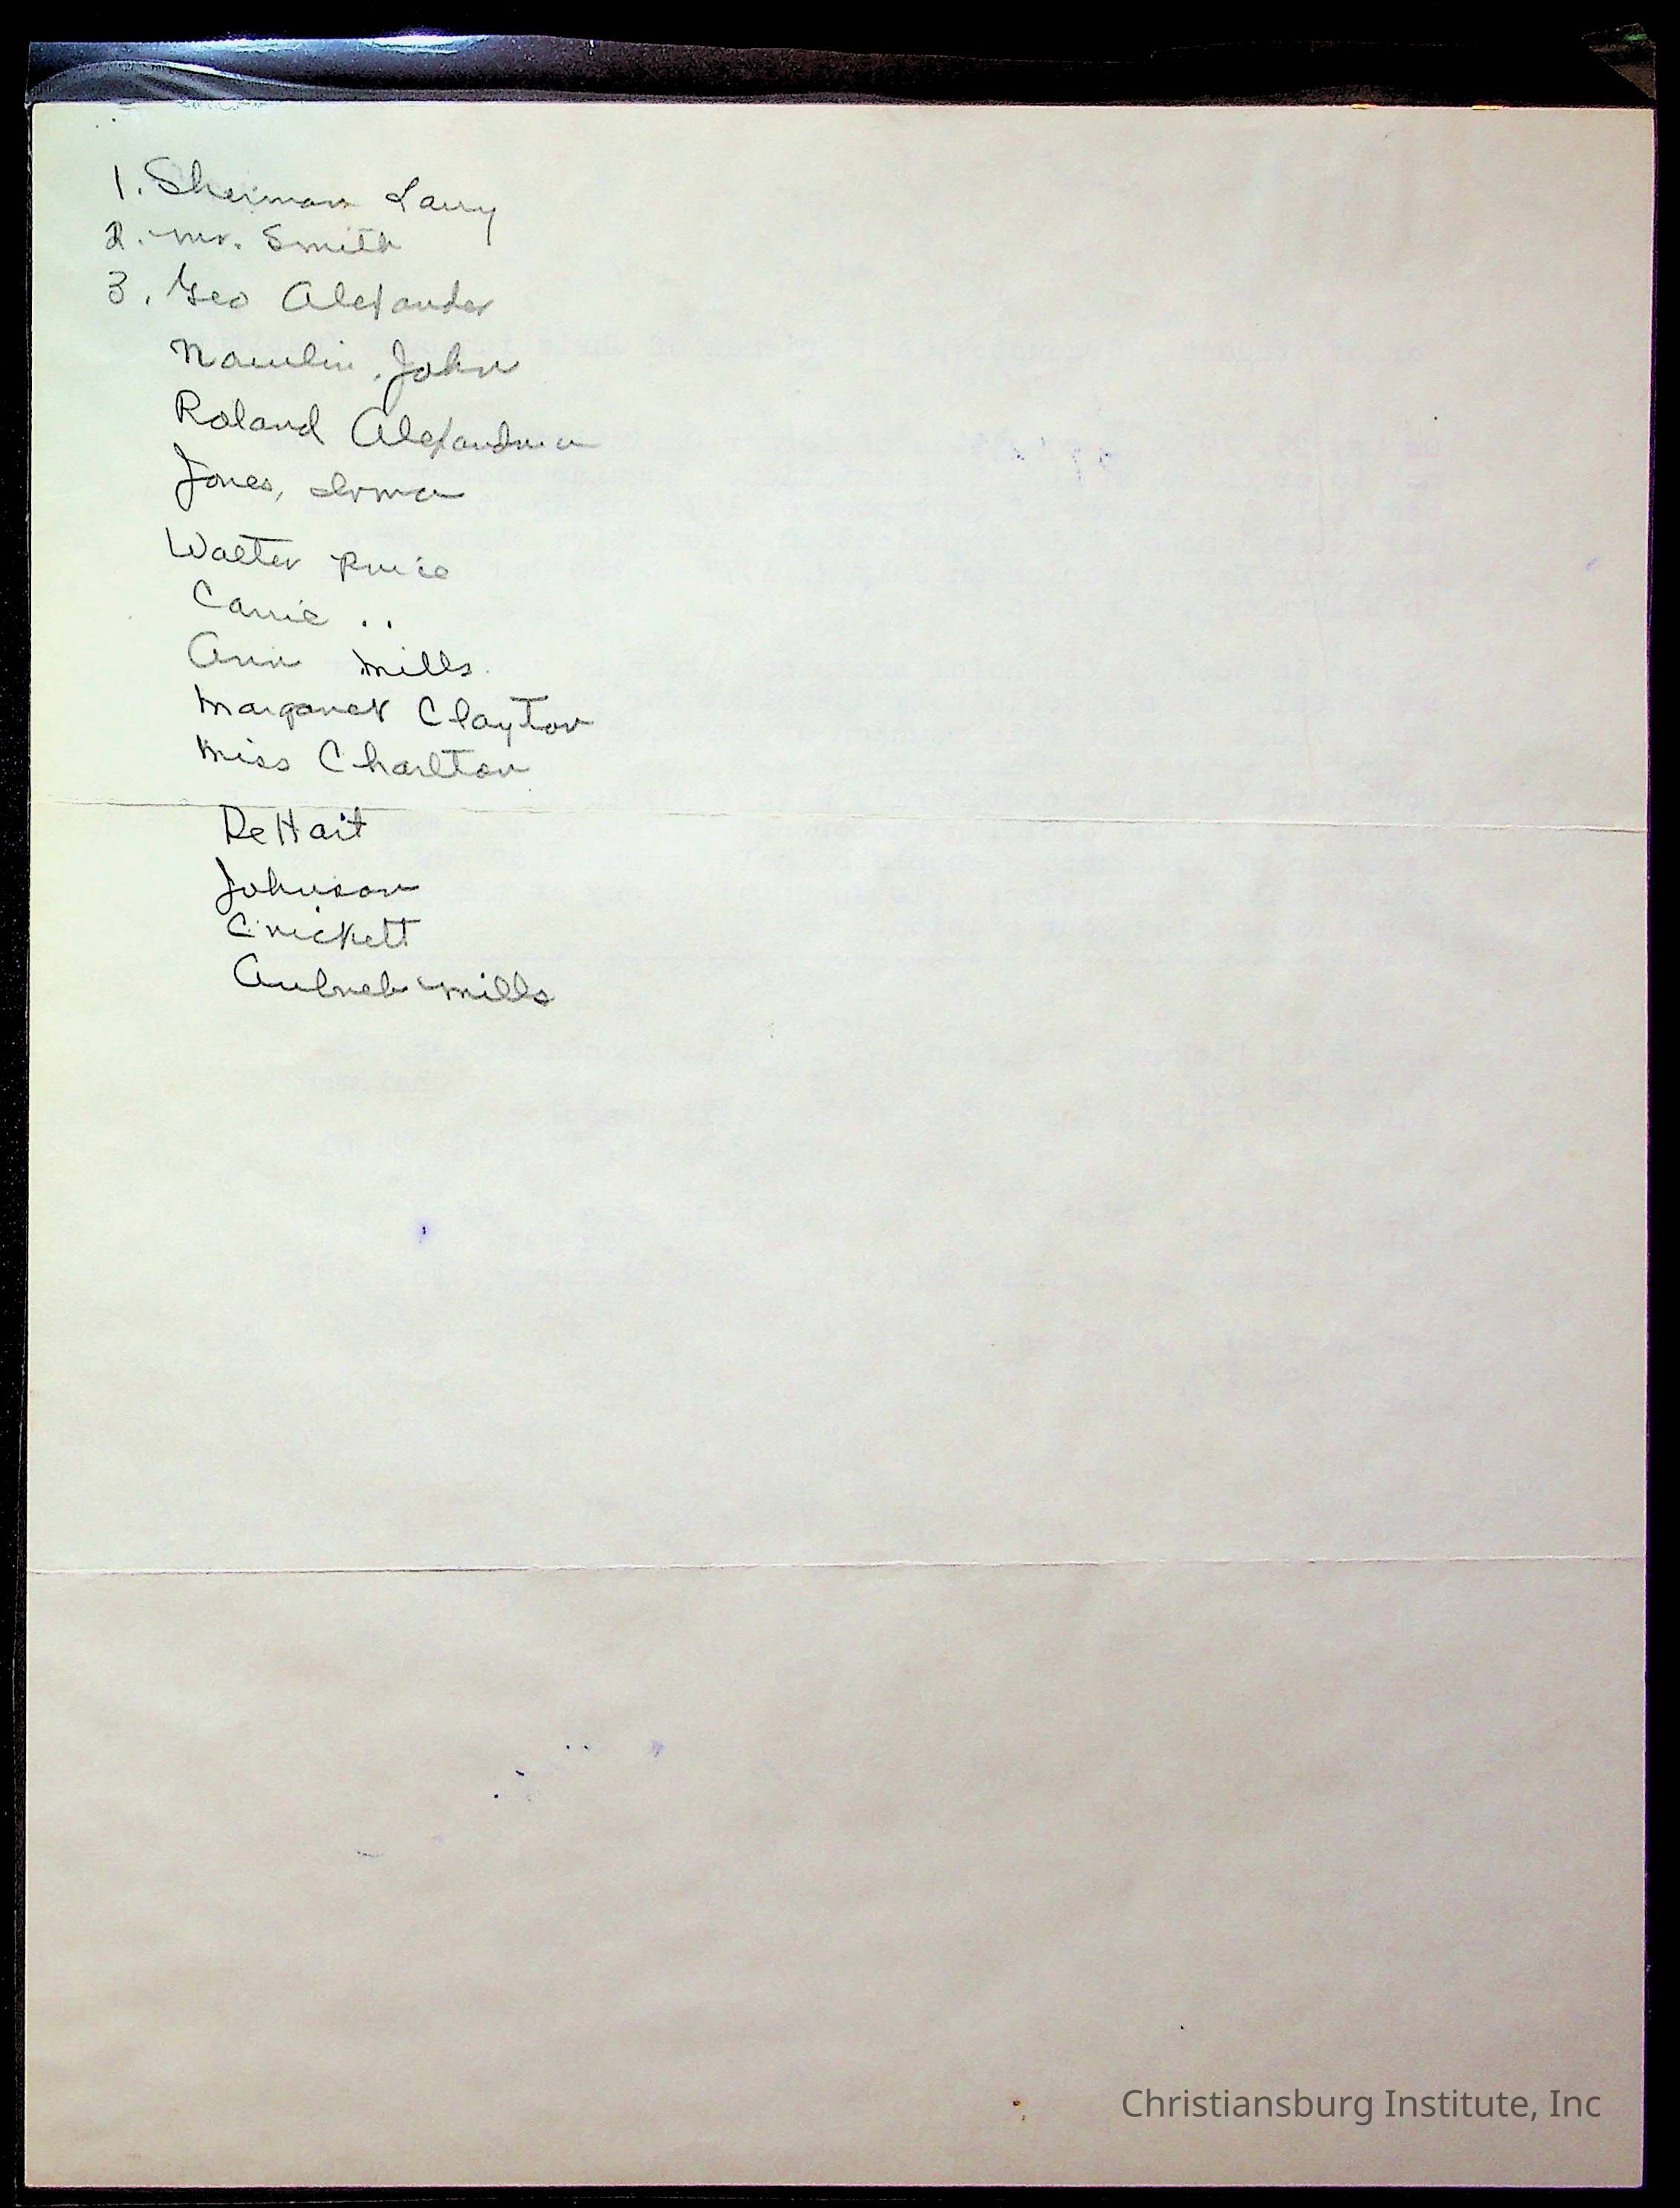 1. Sherman Larry
2. Mr. Smith
3. Geo Alexander
John
Roland
Jones, Irma
Walter Price
Carrie ..
Ann Mills
Margaret Clayton
Miss Charlton
DeHart
Johnson
Crickett
Mills
Christiansburg Institute, Inc